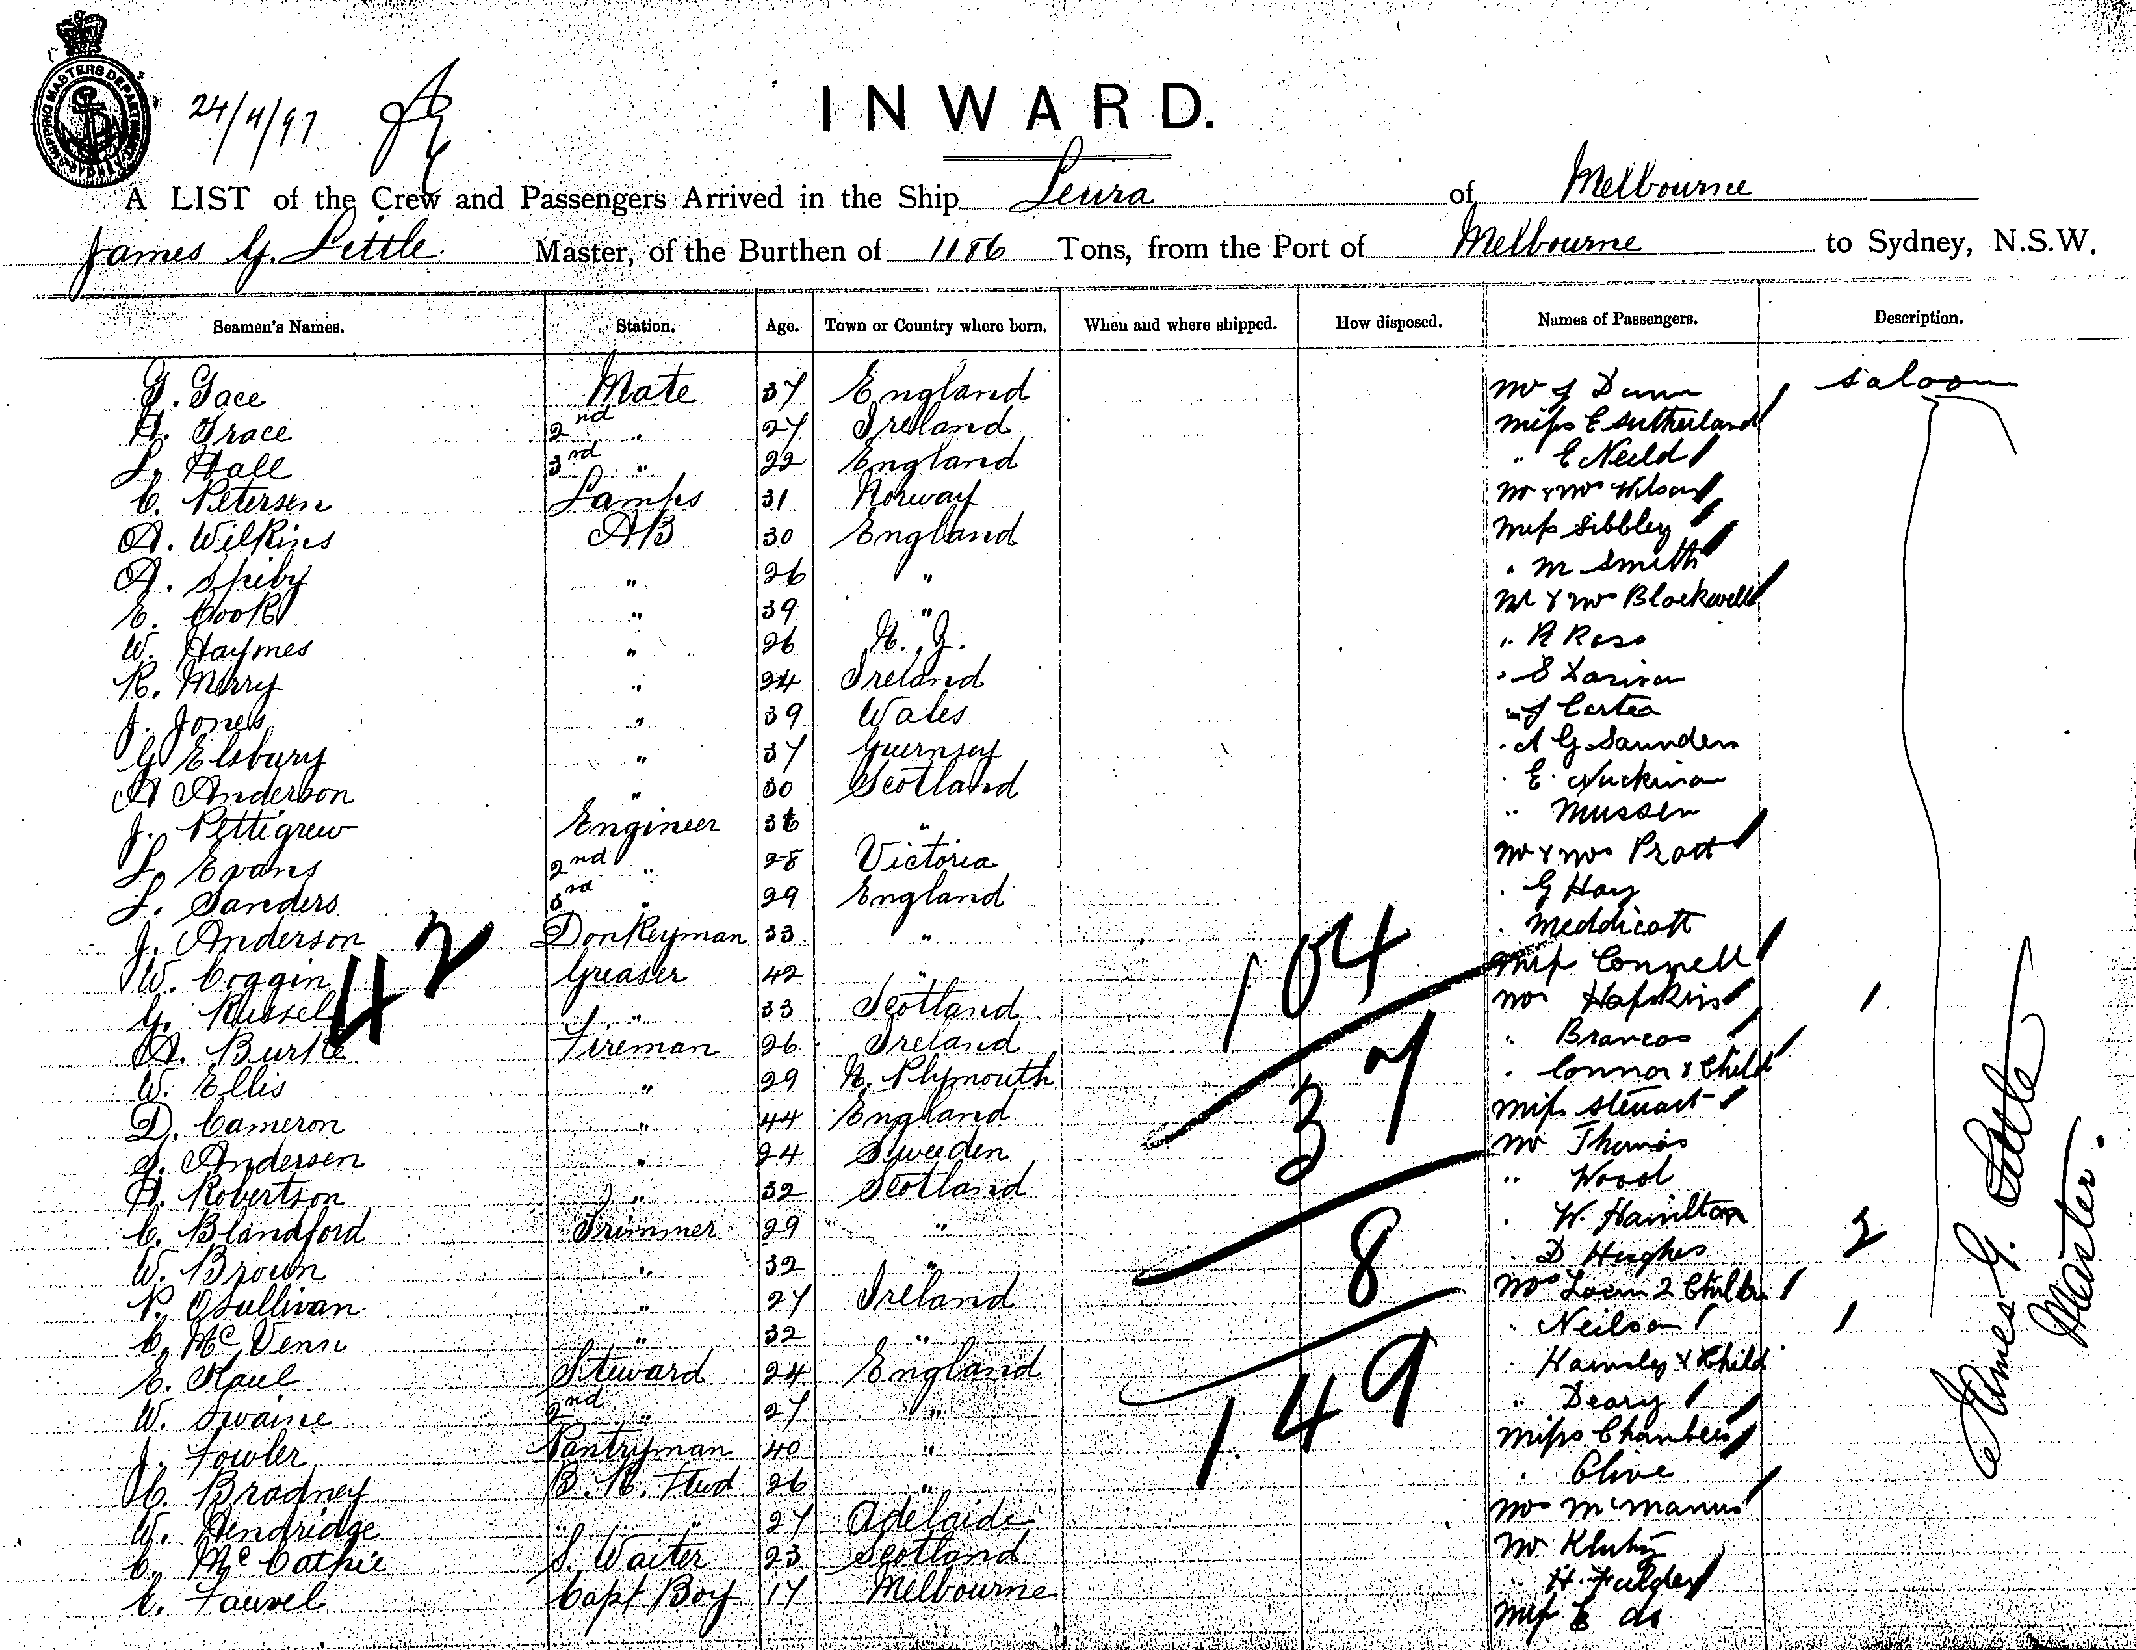 SHIPPING MASTERS DEPARTMENT SYDNEY
24/4/97
INWARD.
A LIST of the Crew and Passengers Arrived in the Ship Leura of Melbourne
James G. Little Master, of the Burthen of 1186 Tons, from the Port of Melbourne to Sydney, N.S.W.
Seamen's Names. Station. Age. Town or Country where born. When and where shipped. How disposed. Names of Passengers. Description.
Gace Mate 37 England Mr J Dunn saloon
H. Grace 2nd " 27 Ireland Miss E Sutherland
L. Hall 3rd " 22 England " E Neild
C. Petersen Lamps 31 Norway Mr & Mrs Wilson
A. Wilkins AB 30 England Miss Sibbley
A. Spiby " 26 " " M Smith
E. Cook " 39 " Mr & Mrs Blackwell
W. Haymes " 26 N. Z. " R Ross
R. Merry " 24 Ireland " S
J. Jones " 39 Wales " J Carter
G Elsbury " 37 Guernsey " A G Saunders
A Anderson " 30 Scotland " E.
J. Pettigrew Engineer 36 " " Mussen
L. Evans 2nd " 28 Victoria Mr & Mrs Pratt
L. Sanders 3rd " 29 England " G Hay
J. Anderson Donkeyman 33 " " Meddicott
42
W. Coggin Greaser 42 " Miss Connell
104
G. Russel " 33 Scotland Mrs Hopkins 1
A. Burke Fireman 26 Ireland " Brancos
W. Ellis " 29 N. Plymouth " Connor & Child
37
D. Cameron " 44 England Miss Steuart
Andersen " 24 Sweeden Mr Thomas
Robertson " 32 Scotland " Wood
C. Blandford Trimmer 29 " " W. Hamilton
8
W. Brown " 32 " " D Hughes 2
P. O'Sullivan " 27 Ireland Mrs 2
C. McVenn " 32 " " Neilson 1
E. Kaul Steward 24 England " & Child
W. Swaine 2nd " 27 " " Deary
149
J. Fowler Pantryman 40 " Miss Chambers
Bradney B. R. Stwd 26 " " Clive
W. Hendridge " " 27 Adelaide Mrs McManus
C. McCathie S. Waiter 23 Scotland Mr
C. Fauvel Capt Boy 17 Melbourne " H.
Miss E do
James G. Little
Master.